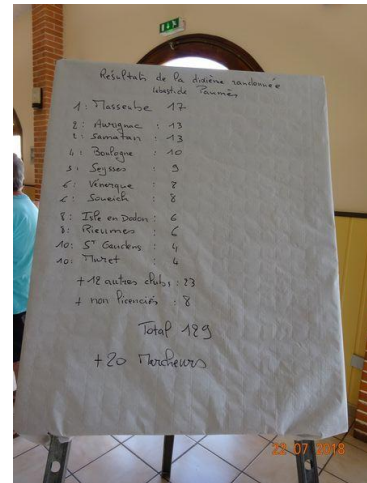 Résultats de la dixième randonnée
labastide Paumès
1 : Masseube 17
2 : Aurignac : 13
2 : Samatan : 13
4 : Boulogne : 10
5 : Seysses : 9
6 : Venerque : 8
6 : Soueich : 8
8 : Isle en Dodon : 6
8 : Rieumes : 6
10 : St Gaudens : 4
10 : Muret : 4
+ 12 autres clubs : 23
+ non licenciés : 8
Total 129
+ 20 Marcheurs
22 07 2018